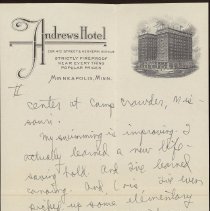 Andrews Hotel
STRICTLY FIREPROOF
NEAR EVERYTHING
POPULAR PRICES
MINNEAPOLIS, MINN.
II
center at Camp Crowder, Mis-
souri.
My swimming is improving. I
actually learned a new life-
saving hold and I've learned
canoeing and I've even
picked up some elementary